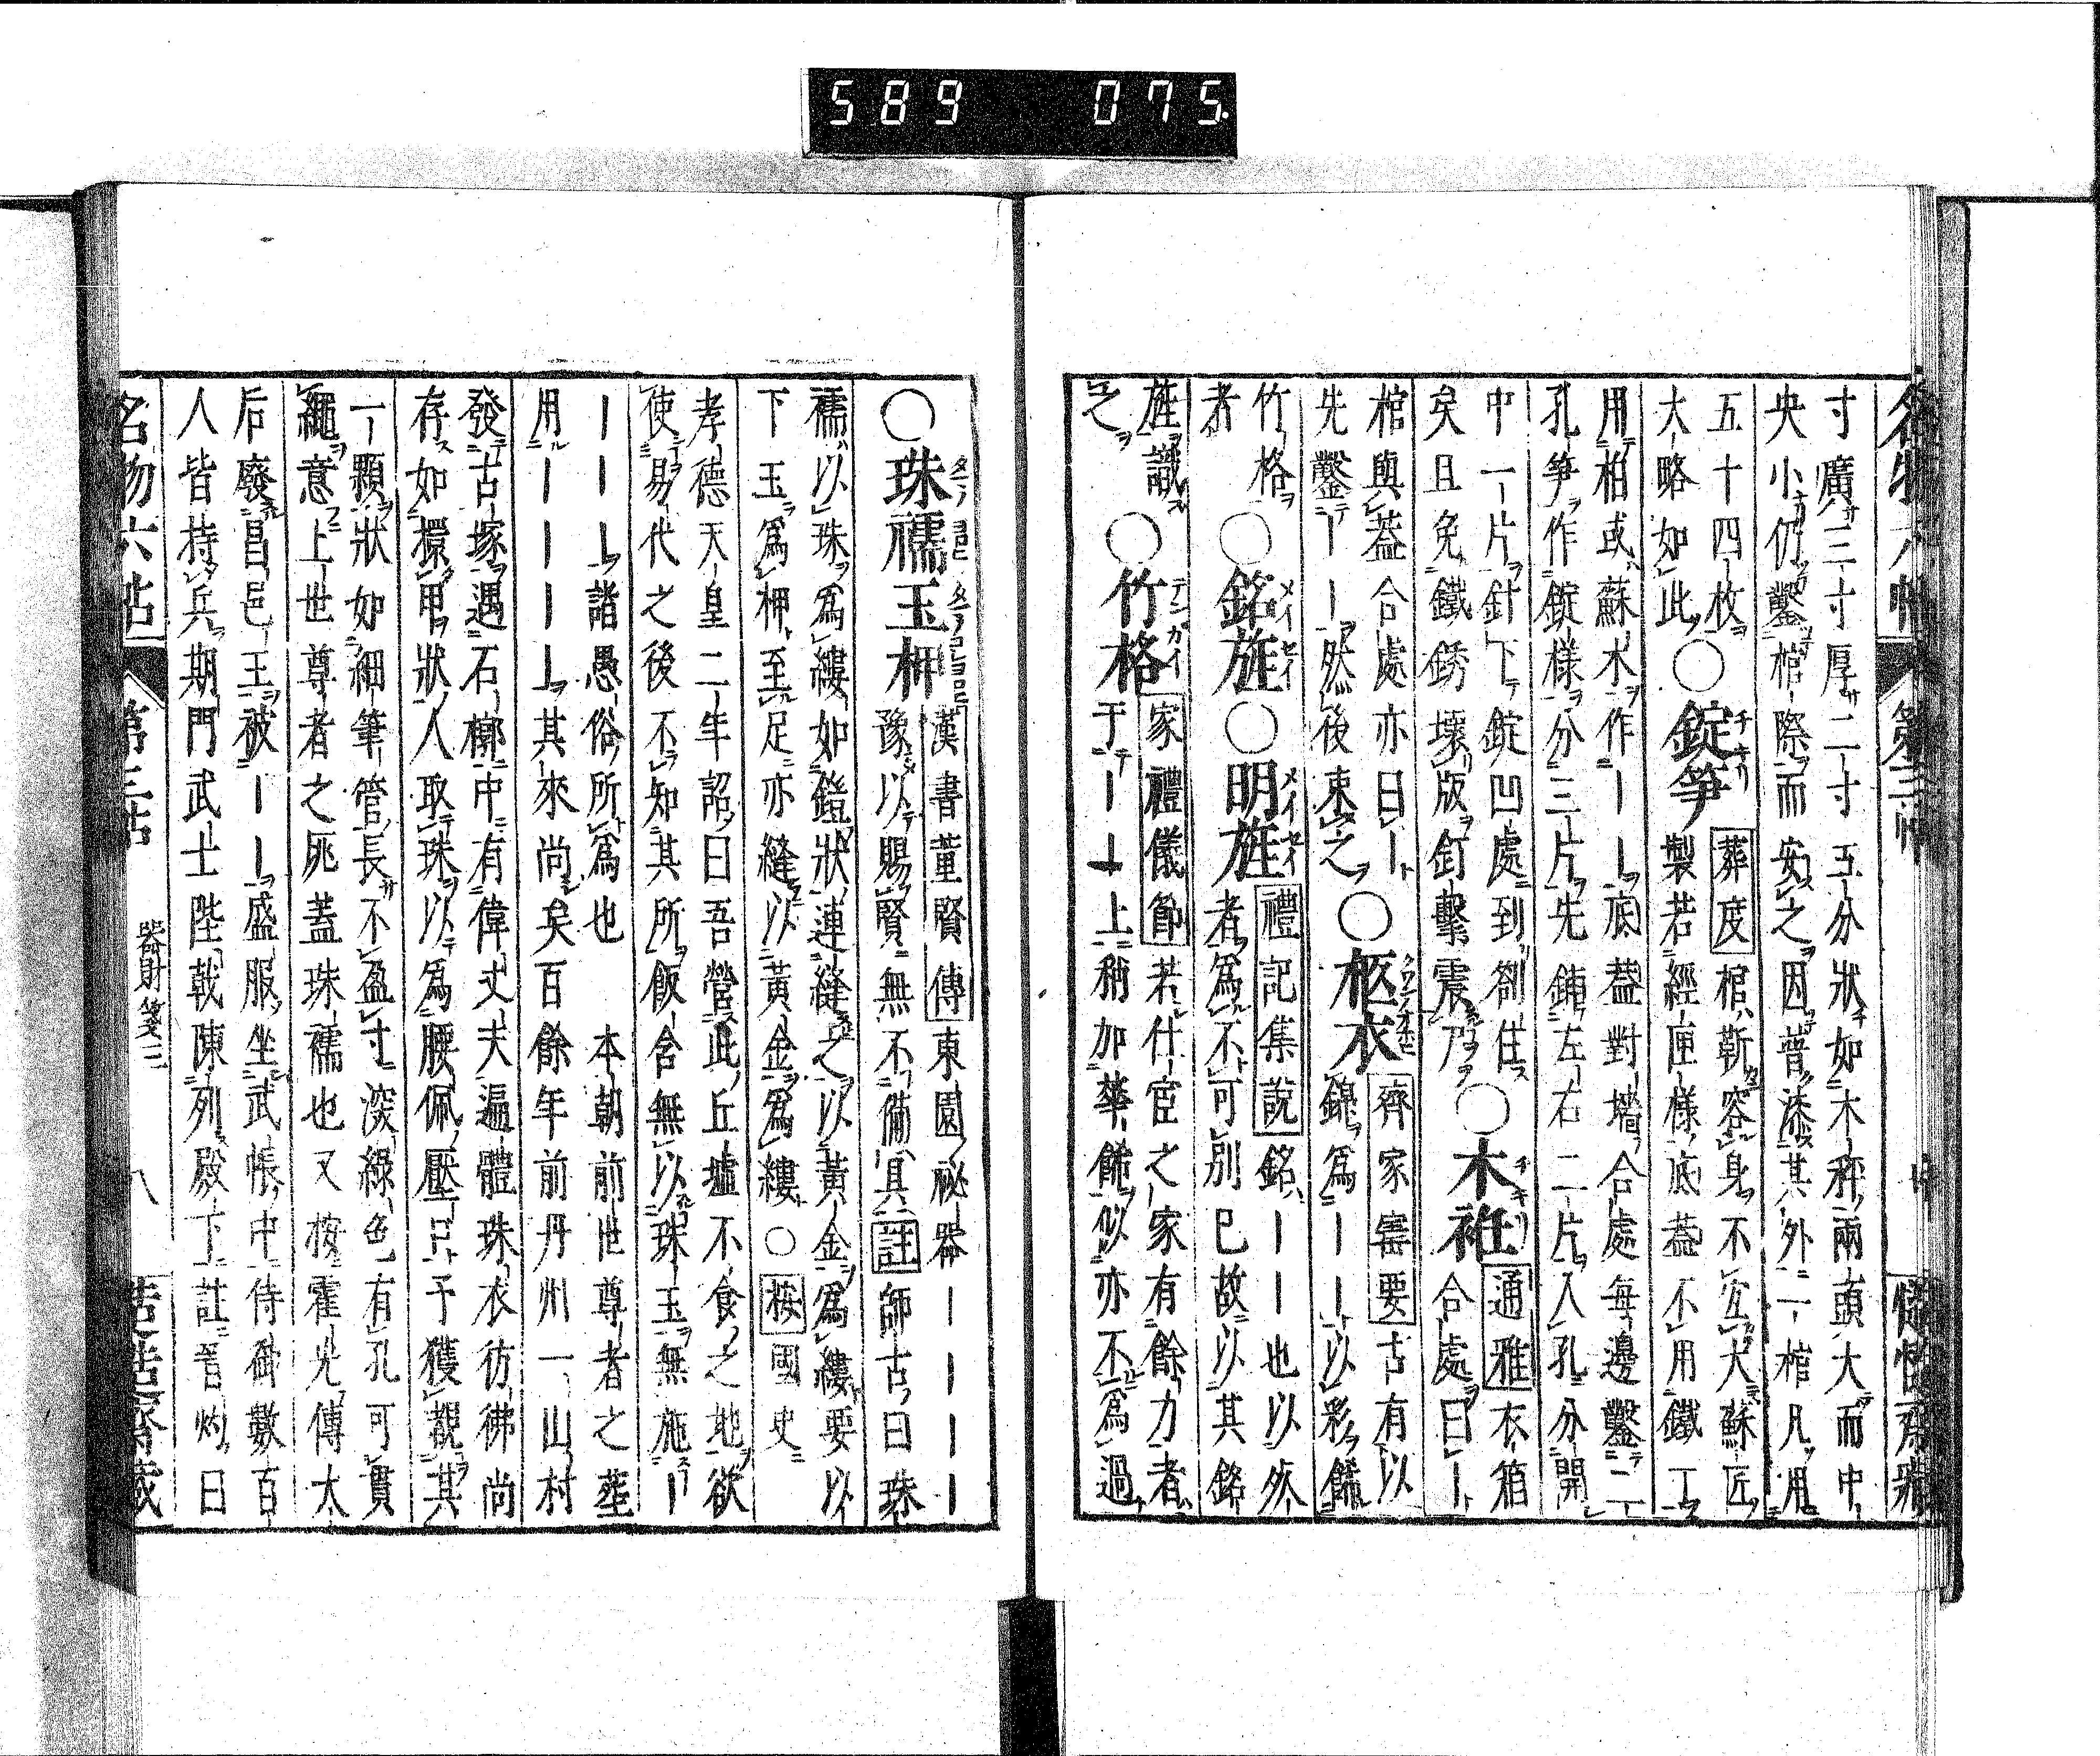 589 075
寸廣三寸厚二寸五分狀如木秤兩頭大而中
央小仍鑿棺際而安之因普漆其外一棺凡用
五十四枚
大略如此
○錠笋
葬度 棺斬容身不宜大蘇匠
製若經匣樣底蓋不用鐵丁
用柏或蘇木作ーー底蓋對墻合處每邊鑿二
孔笋作錠樣分三片先鋪左右二片入孔分開
中一片針下錠凹處到劄住
矣且免鐵銹壞版釘擊震乃
○木袵
通雅 衣箱
合處曰ー
棺與蓋合處亦曰ー
先鑿ーー然後束之
○柩衣
齊家寶要 古有以
錦爲ーー以彩餙
竹格
者
○銘旌○明旌
禮記集說 銘ーー也以死
者爲不可別已故以其銘
旌識
之
○竹格
家禮儀節 若仕宦之家有餘力者
于ーー上稍加華餙似亦不爲過
○珠襦玉柙
漢書董賢傳 東園祕器ーーーー
豫以賜賢無不備具 註 師古曰珠
襦以珠爲縷如鎧狀連縫之以黃金爲縷要以
下玉爲柙至足亦縫以黃金爲縷○ 按 國史
孝德天皇二年詔曰吾營此丘墟不食之地欲
使易代之後不知其所飯含無以珠玉無施ー
ーーー諸愚俗所爲也 本朝前世尊者之葬
用ーーーー其來尚矣百餘年前丹州一山村
發古塚遇石槨中有偉丈夫遍體珠衣彷彿尚
存如擐甲狀人取珠以爲腰佩壓口予獲觀其
一顆狀如細筆管長不盈寸深綠色有孔可貫
繩意上世尊者之死蓋珠襦也又按霍光傳太
后廢昌邑王被ーー盛服坐武帳中侍御數百
人皆持兵期門武士陛戟陳列殿下註晉灼曰
名物六帖 第三帖 器財箋三 八